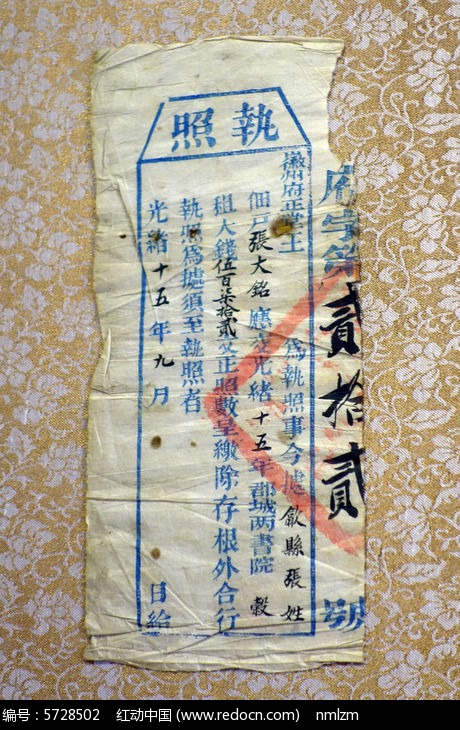 執照
府字第貳拾貳號
徽州府正堂王 為執照事今據歙縣張姓
佃戶張大銘應交光緒十五年郡城两書院穀
租大錢伍百柒拾貳文正照數呈繳除存根外合行
執照為據須至執照者
光緒十五年九月 日給
编号：5728502 红动中国 (www.redocn.com) nmlzm